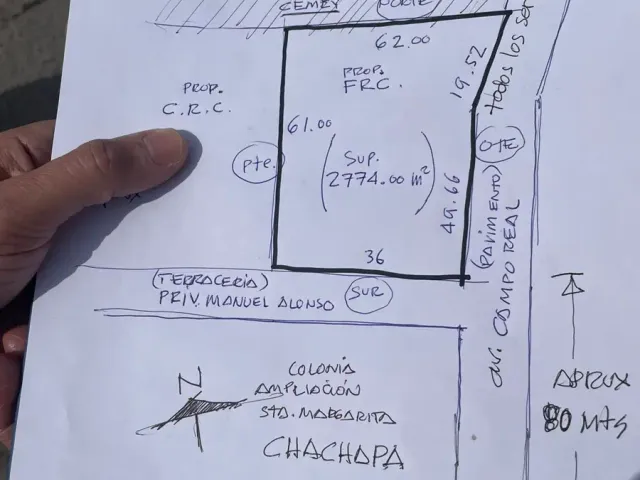 CEMEX
NORTE
62.00
todos los ser
19.52
PROP.
FRC.
PROP.
C.R.C.
61.00
pte.
SUP.
2774.00 m²
OTE
49.66
(PAVIMENTO)
AV. CAMPO REAL
36
(TERRACERIA)
PRIV. MANUEL ALONSO
SUR
N
COLONIA
AMPLIACIÓN
STA. MARGARITA
CHACHAPA
APROX
80 MTS